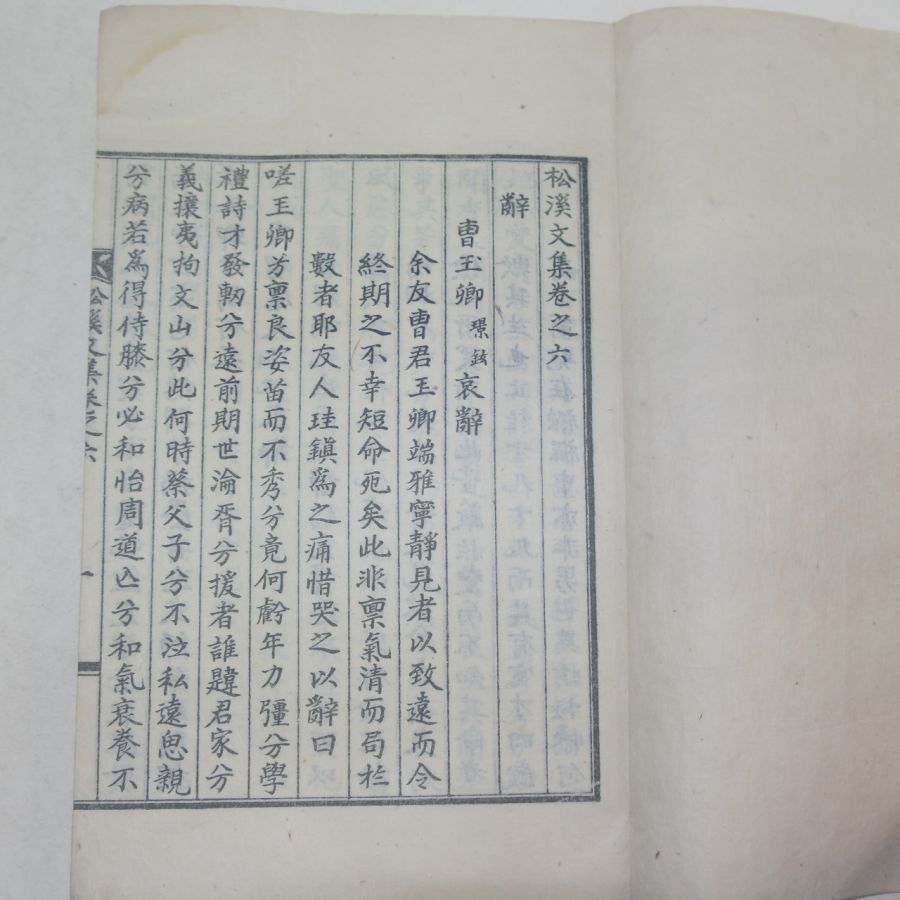 松溪文集卷之六
辭
曺玉卿璟鉉哀辭
余友曺君玉卿端雅寧靜見者以致遠而今
終期之不幸短命死矣此非禀氣清而局於
數者耶友人珪鎭爲之痛惜哭之以辭曰
嗟玉卿兮禀良姿苗而不秀兮竟何虧年力彊兮學
禮詩才發軔兮遠前期世淪胥兮援者誰韙君家兮
義攘夷拘文山兮此何時蔡父子兮不泣私遠思親
兮病若爲得侍膝兮必和怡周道亾兮和氣衰養不
松溪文集卷之六
一